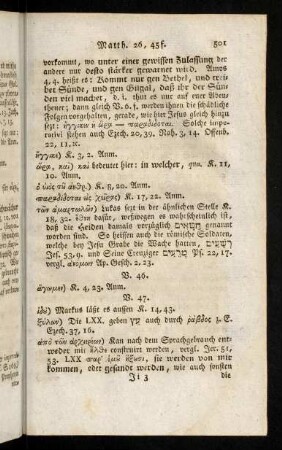 Matth. 26, 45f. 501
vorkommt, wo unter einer gewissen Zulassung der
andere nur desto stärker gewarnet wird. Amos
4, 4. heißt es: Kommt nur gen Bethel, und treibet
Sünde, und gen Gilgal, daß ihr der Sünden
viel machet, d. i. thut es nur auf eure Weise
theuer; dann gleich V. 6. f. werden ihnen die schädliche
Folgen gezeiget, gerade, wie hier Jesus gleich hinzusetzt:
ηγγικεν η ωρα — παραδιδοται. Solche imperativi
stehen auch Ezech. 20, 39. Nah. 3, 14. Offenb.
22, 11. ꝛc.
ηγγικε) K. 3, 2. Anm.
ωρα, και) και bedeutet hier: in welcher, qua. K. 11,
10. Anm.
ο υιος τȣ ανθρ.) K. 8, 20. Anm.
παραδιδοται εις χειρας) K. 17, 22. Anm.
των αμαρτωλων) Lukas setzt in der ähnlichen Stelle K.
18, 32. εθνη dafür, weswegen es wahrscheinlich ist,
daß die Heiden damals vorzüglich רְשָׁעִים genannt
worden sind. So heissen auch die römische Soldaten,
welche bey Jesu Grabe die Wache hatten, רְשָׁעִים
Jes. 53, 9. und Seine Creuziger מְרֵעִים Ps. 22, 17.
vergl. ανομων Ap. Gesch. 2, 23.
V. 46.
αγωμεν) K. 4, 23. Anm.
V. 47.
ιδȣ) Markus läßt es aussen K. 14, 43.
ξυλων) Die LXX. geben עֵץ auch durch ῥαβδος z. E.
Ezech. 37, 16.
απο των αρχιερεων) Kan nach dem Sprachgebrauch entweder
mit ηλθε construirt werden, vergl. Jer. 51,
53. LXX παρ' εμȣ ηξȣσι, sie werden von mir
kommen, oder gesandt werden, wie auch sonsten
Ji 3 die